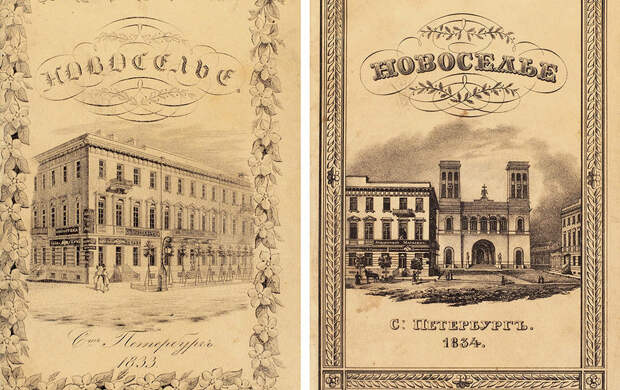 НОВОСЕЛЬЕ.
С. Петербургъ
1833
НОВОСЕЛЬЕ
С: ПЕТЕРБУРГЪ.
1834.